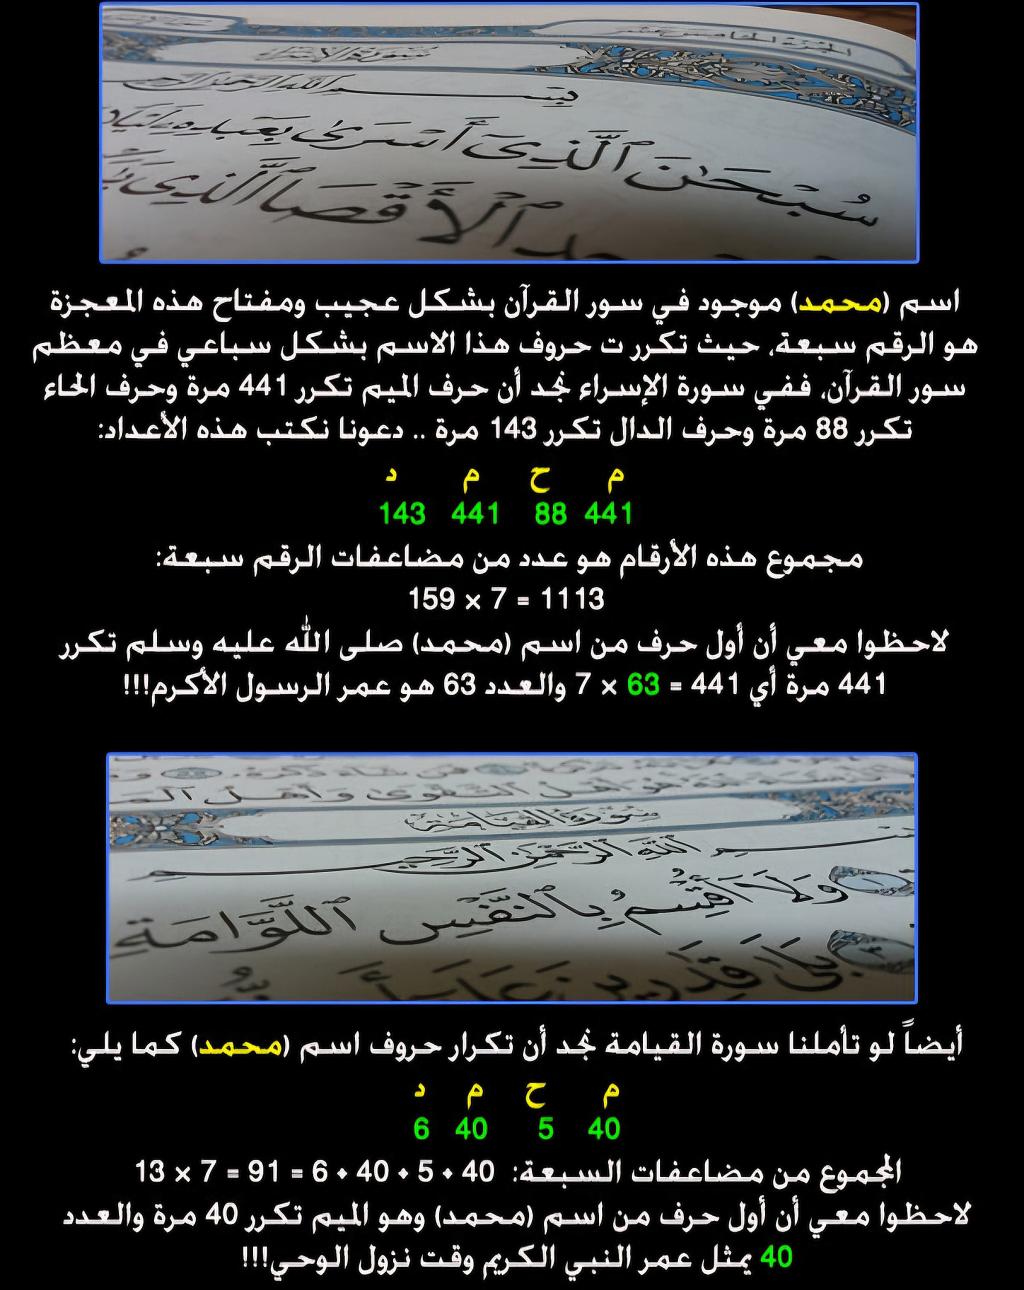 سورة الإسراء
بسم الله الرحمن الرحيم
سُبْحَٰنَ ٱلَّذِىٓ أَسْرَىٰ بِعَبْدِهِۦ
ٱلْأَقْصَا ٱلَّذِى
اسم (محمد) موجود في سور القرآن بشكل عجيب ومفتاح هذه المعجزة
هو الرقم سبعة، حيث تكرر ت حروف هذا الاسم بشكل سباعي في معظم
سور القرآن، ففي سورة الإسراء نجد أن حرف الميم تكرر 441 مرة وحرف الحاء
تكرر 88 مرة وحرف الدال تكرر 143 مرة .. دعونا نكتب هذه الأعداد:
م ح م د
441 88 441 143
مجموع هذه الأرقام هو عدد من مضاعفات الرقم سبعة:
1113 = 7 × 159
لاحظوا معي أن أول حرف من اسم (محمد) صلى الله عليه وسلم تكرر
441 مرة أي 441 = 63 × 7 والعدد 63 هو عمر الرسول الأكرم!!!
هو أهل التقوى وأهل
سورة القيامة
بسم الله الرحمن الرحيم
وَلَآ أُقْسِمُ بِٱلنَّفْسِ ٱللَّوَّامَةِ
بَلَىٰ قَٰدِرِينَ عَلَىٰٓ
أيضاً لو تأملنا سورة القيامة نجد أن تكرار حروف اسم (محمد) كما يلي:
م ح م د
40 5 40 6
المجموع من مضاعفات السبعة: 40 + 5 + 40 + 6 = 91 = 7 × 13
لاحظوا معي أن أول حرف من اسم (محمد) وهو الميم تكرر 40 مرة والعدد
40 يمثل عمر النبي الكريم وقت نزول الوحي!!!